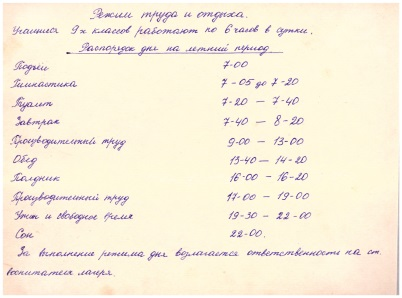 Режим труда и отдыха.
Учащиеся 9х классов работают по 6 часов в сутки.
Распорядок дня на летний период.
Подъём 7-00
Гимнастика 7-05 до 7-20
Туалет 7-20 — 7-40
Завтрак 7-40 — 8-20
Производительный труд 9-00 — 13-00
Обед 13-40 — 14-20
Полдник 16-00 — 16-20
Производительный труд 17-00 — 19-00
Ужин и свободное время 19-30 — 22-00
Сон 22-00.
За выполнение режима дня возлагается ответственность на ст.
воспитателя лагеря.